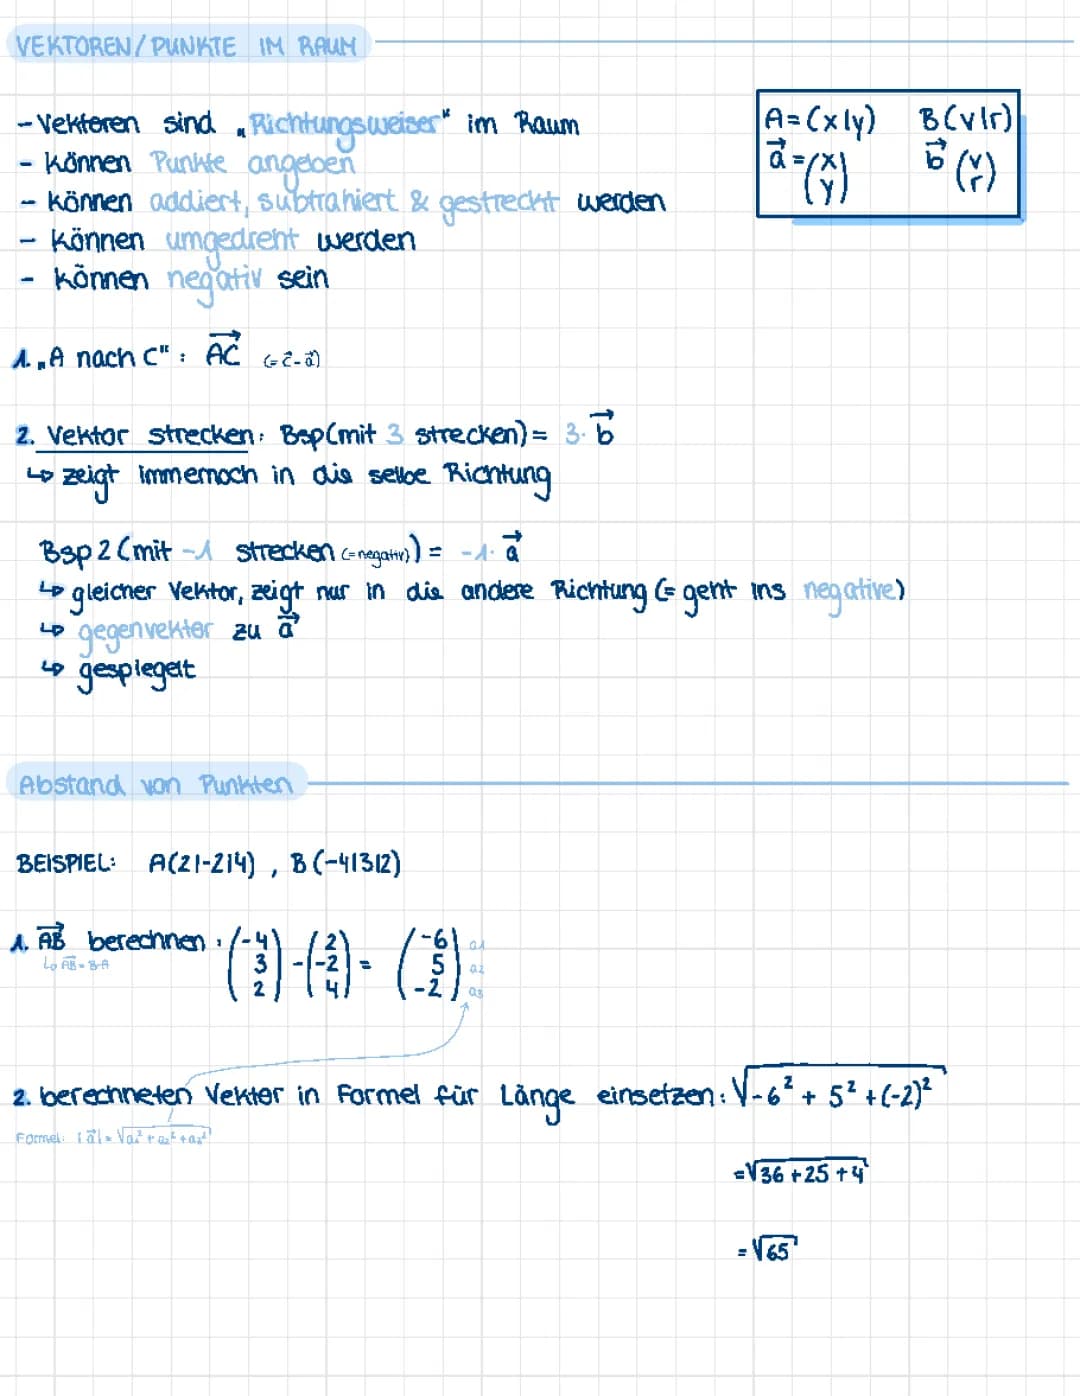 VEKTOREN/PUNKTE IM RAUM
- Vektoren sind „Richtungsweiser" im Raum
- können Punkte angeben
- können addiert, subtrahiert & gestreckt werden
- können umgedreht werden
- können negativ sein
A=(x|y) B(v|r)
a⃗=(x y) b⃗ (v r)
1. „A nach C": AC⃗ (=c⃗-a⃗)
2. Vektor strecken: Bsp(mit 3 strecken)= 3·b⃗
↳ zeigt immernoch in die selbe Richtung
Bsp 2 (mit -1 strecken (=negativ)) = -1·a⃗
↳ gleicher Vektor, zeigt nur in die andere Richtung (= geht ins negative)
↳ gegenvektor zu a⃗
↳ gespiegelt
Abstand von Punkten
BEISPIEL: A(2|-2|4), B(-4|3|2)
1. AB⃗ berechnen: (-4 3 2) - (2 -2 4) = (-6 5 -2) a1 a2 a3
↳ AB⃗ = B-A
2. berechneten Vektor in Formel für Länge einsetzen: √-6² + 5² + (-2)²
Formel: |a⃗| = √a₁² + a₂² + a₃²
=√36 + 25 + 4
=√65